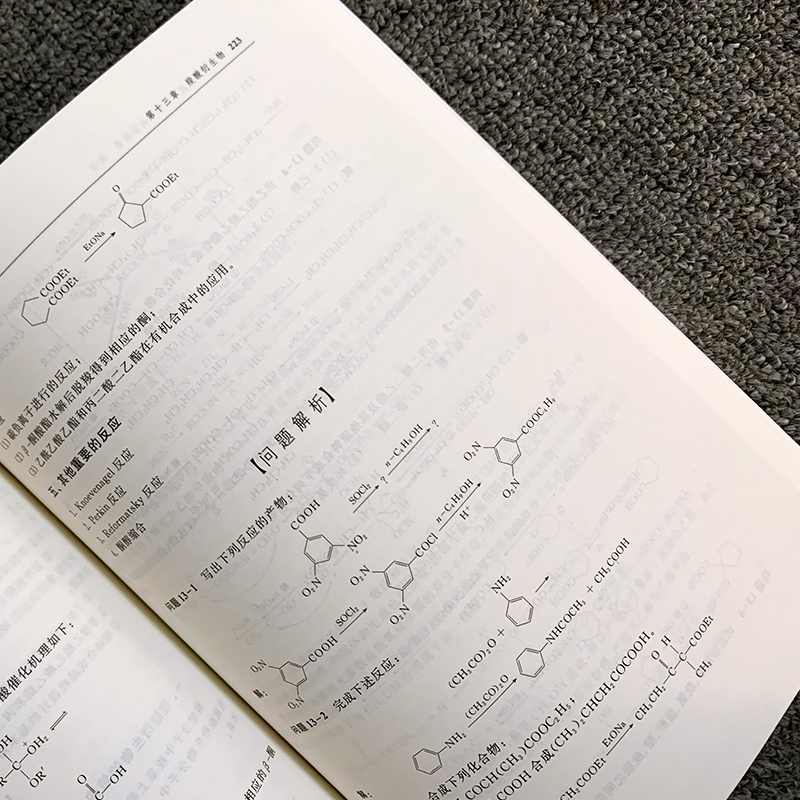 第十三章 羧酸衍生物 223
O
COOEt
EtONa
COOEt
COOEt
(1) 碳负离子进行的反应；
(2) β-酮酸酯水解后脱羧得到相应的酮；
(3) 乙酰乙酸乙酯和丙二酸二乙酯在有机合成中的应用。
五、其他重要的反应
1. Knoevenagel 反应
2. Perkin 反应
3. Reformatsky 反应
4. 酮醇缩合
【问题解析】
问题 13-1 写出下列反应的产物：
COOH
NO₂
O₂N
SOCl₂
?
n-C₄H₉OH
?
解：
O₂N
COOH
O₂N
SOCl₂
O₂N
COCl
O₂N
n-C₄H₉OH
H⁺
O₂N
COOC₄H₉
O₂N
问题 13-2 完成下述反应：
(CH₃CO)₂O +
NH₂
解：
NH₂
(CH₃CO)₂O
NHCOCH₃ + CH₃COOH
合成下列化合物：
COCH(CH₃)COOC₂H₅；
COOH 合成 (CH₃)₂CHCH₂COCOOH。
CH₂COOEt
EtONa
CH₃CH₂
O
H
C
C
COOEt
CH₃
酸催化机理如下：
OH
C
OH₂
OR'
O
C
OH
相应的 β-酮